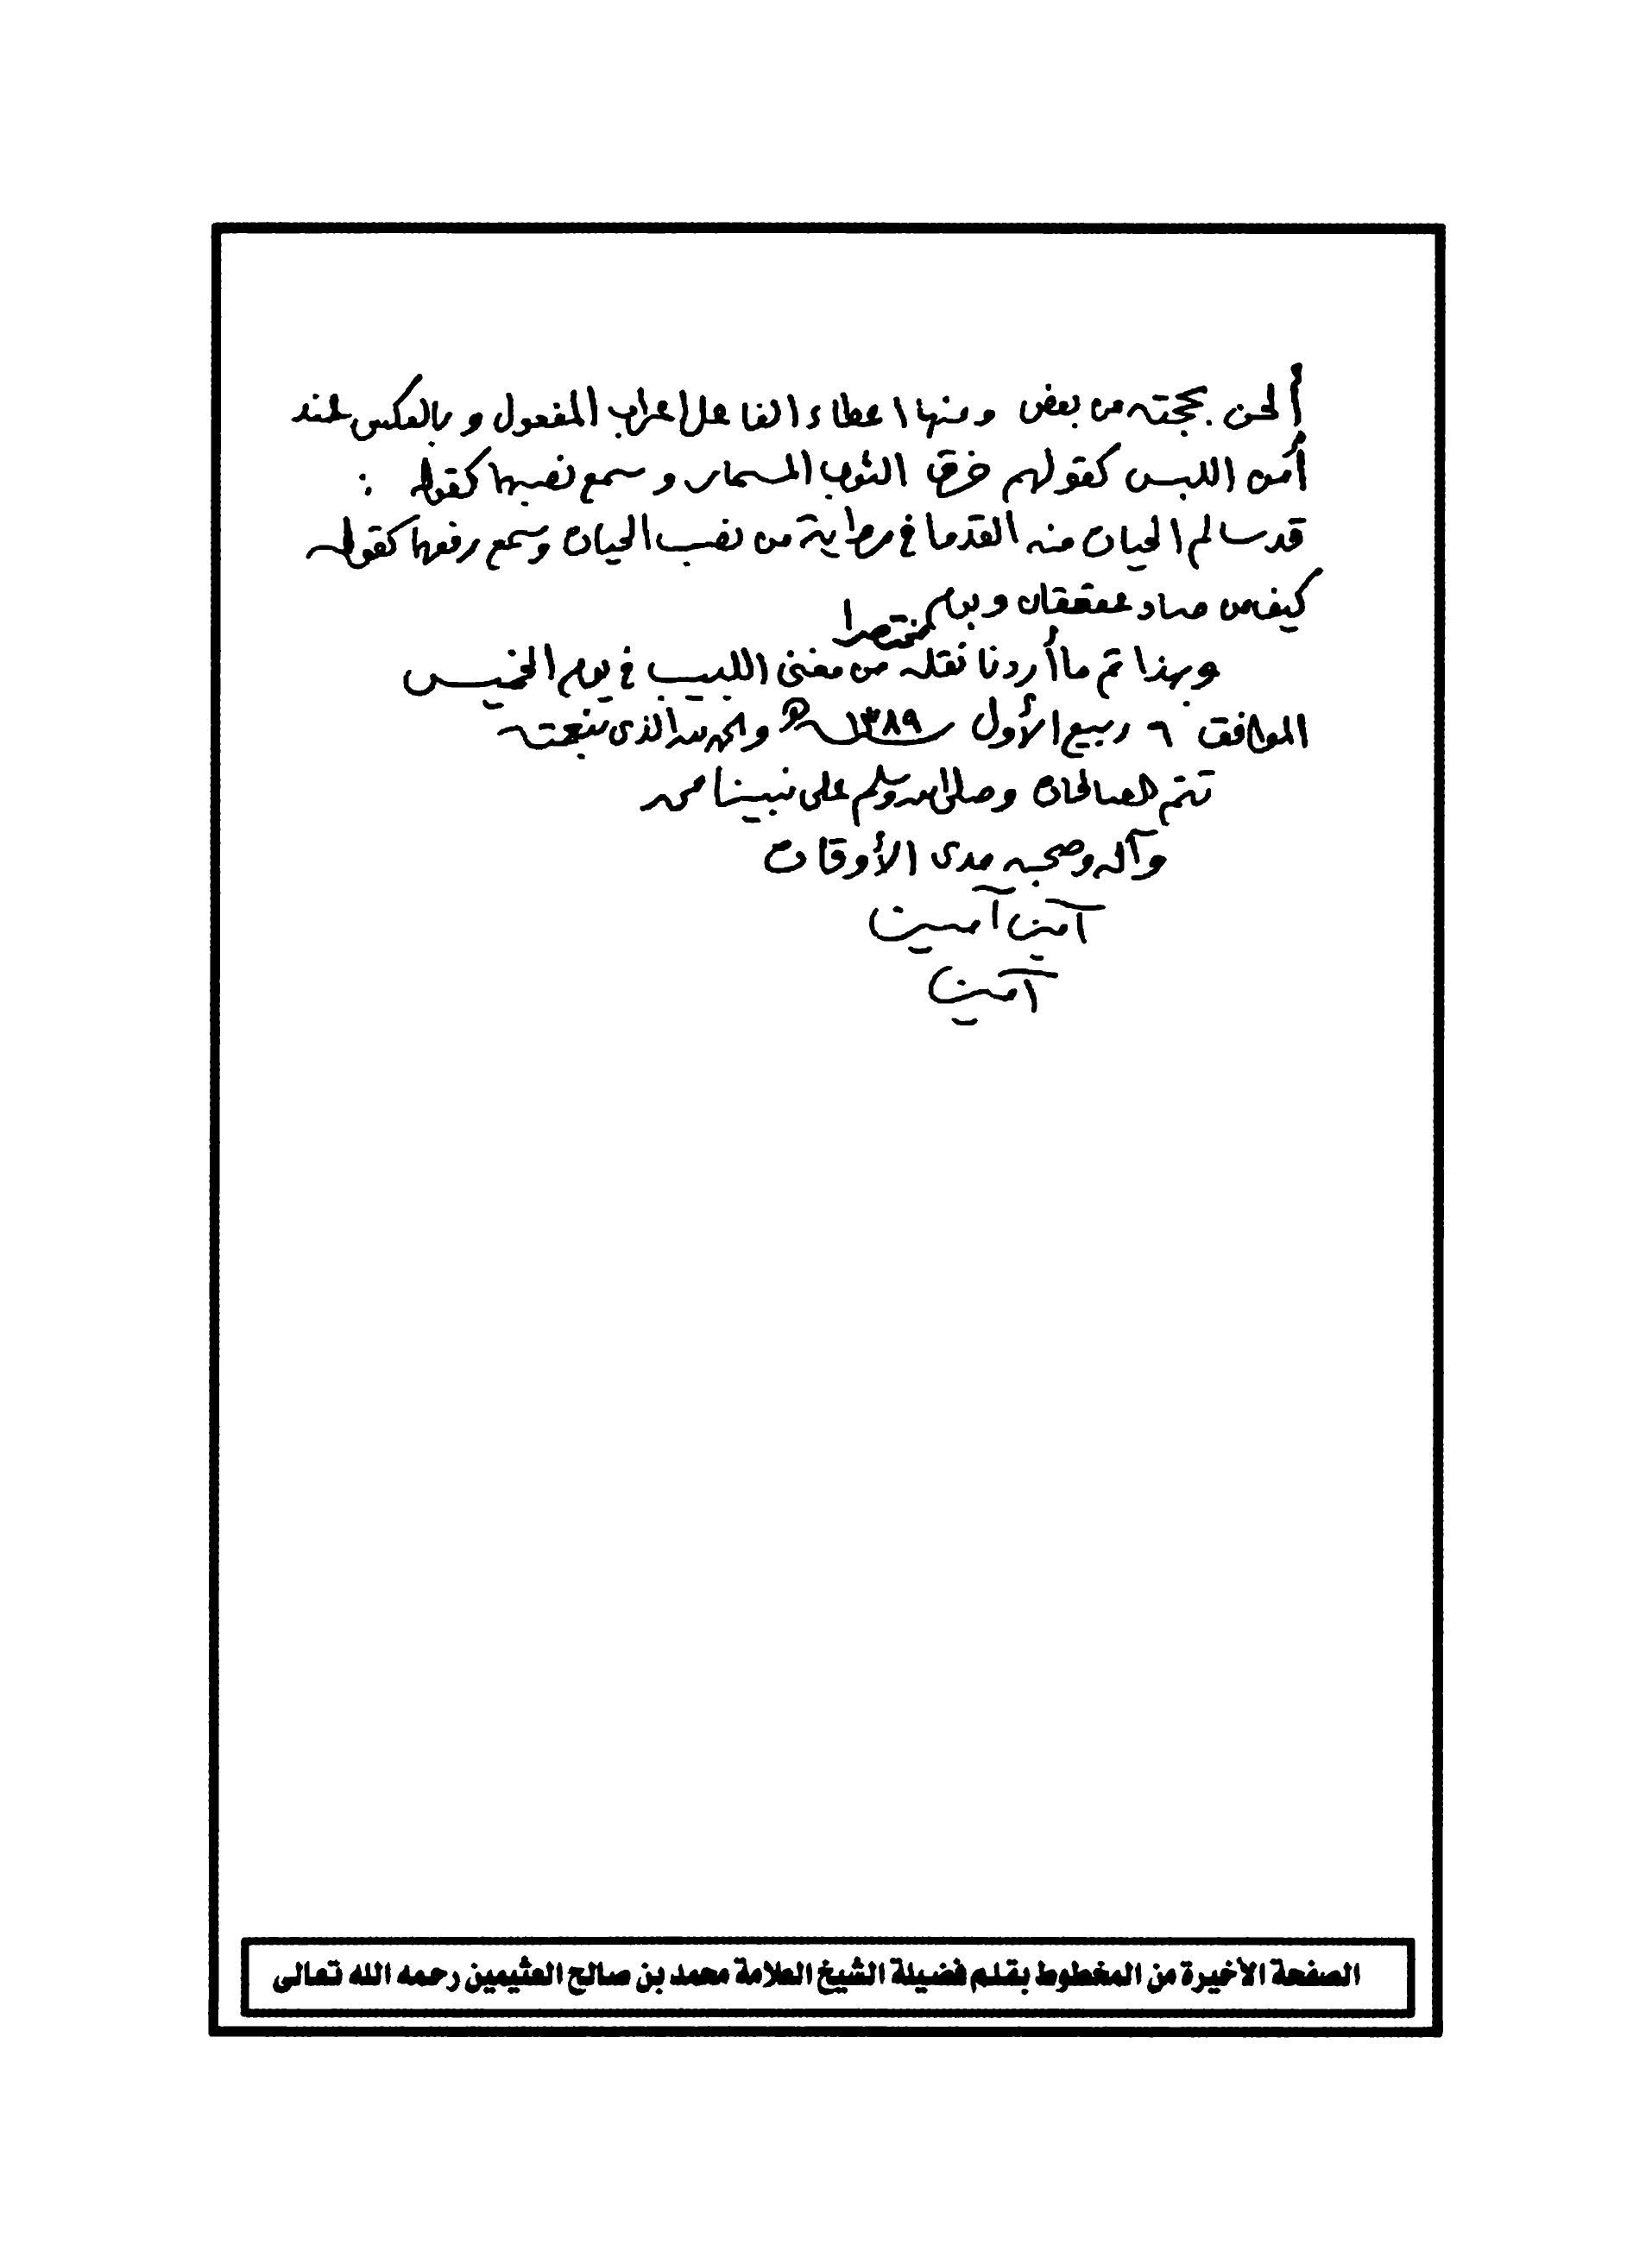 ألحن بحجته من بعض ومنها اعطاء الفاعل اعراب المفعول وبالعكس عند
أمن اللبس كقولهم خرق الثوب المسمار وسمع نصبها كقوله :
قد سالم الحيات منه القدما في رواية من نصب الحيات وسمع رفعها كقوله
كيف من صاد عقعقان وبوم
وبهذا تم ما أردنا نقله مختصرا من مغني اللبيب في يوم الخميس
الموافق ٦ ربيع الأول سنة ١٣٨٩ هـ والحمد لله الذى بنعمته
تتم الصالحات وصلى الله وسلم على نبينا محمد
وآله وصحبه مدى الأوقات
آمين آمين
آمين
الصفحة الأخيرة من المخطوط بقلم فضيلة الشيخ العلامة محمد بن صالح العثيمين رحمه الله تعالى